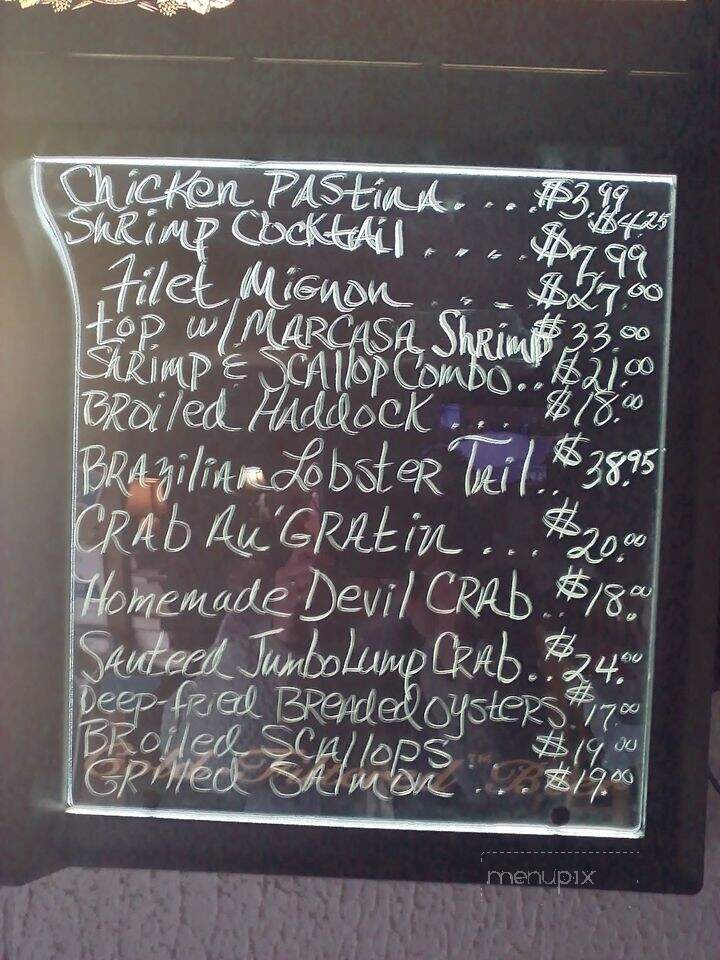 Chicken Pastina.... $3.99
$4.25
Shrimp Cocktail .... $7.99
Filet Mignon ... $27.00
top w/ Marcasa Shrimp $33.00
Shrimp & Scallop Combo.. $21.00
Broiled Haddock .... $18.00
Brazilian Lobster Tail.. $38.95
Crab Au'Gratin ... $20.00
Homemade Devil Crab.. $18.00
Sauteed Jumbo Lump Crab.. $24.00
Deep-fried Breaded Oysters. $17.00
Broiled Scallops ... $19.00
Grilled Salmon ... $19.00
menupix